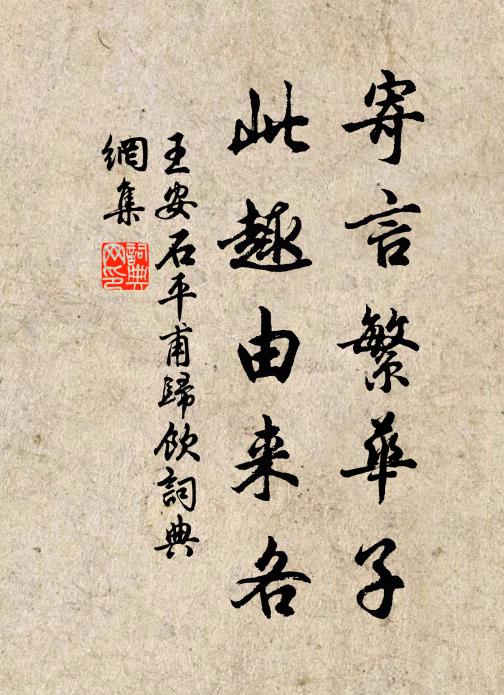 寄言繁華子
此趣由来各
王安石平甫歸飲詞典
網集
詞典网印